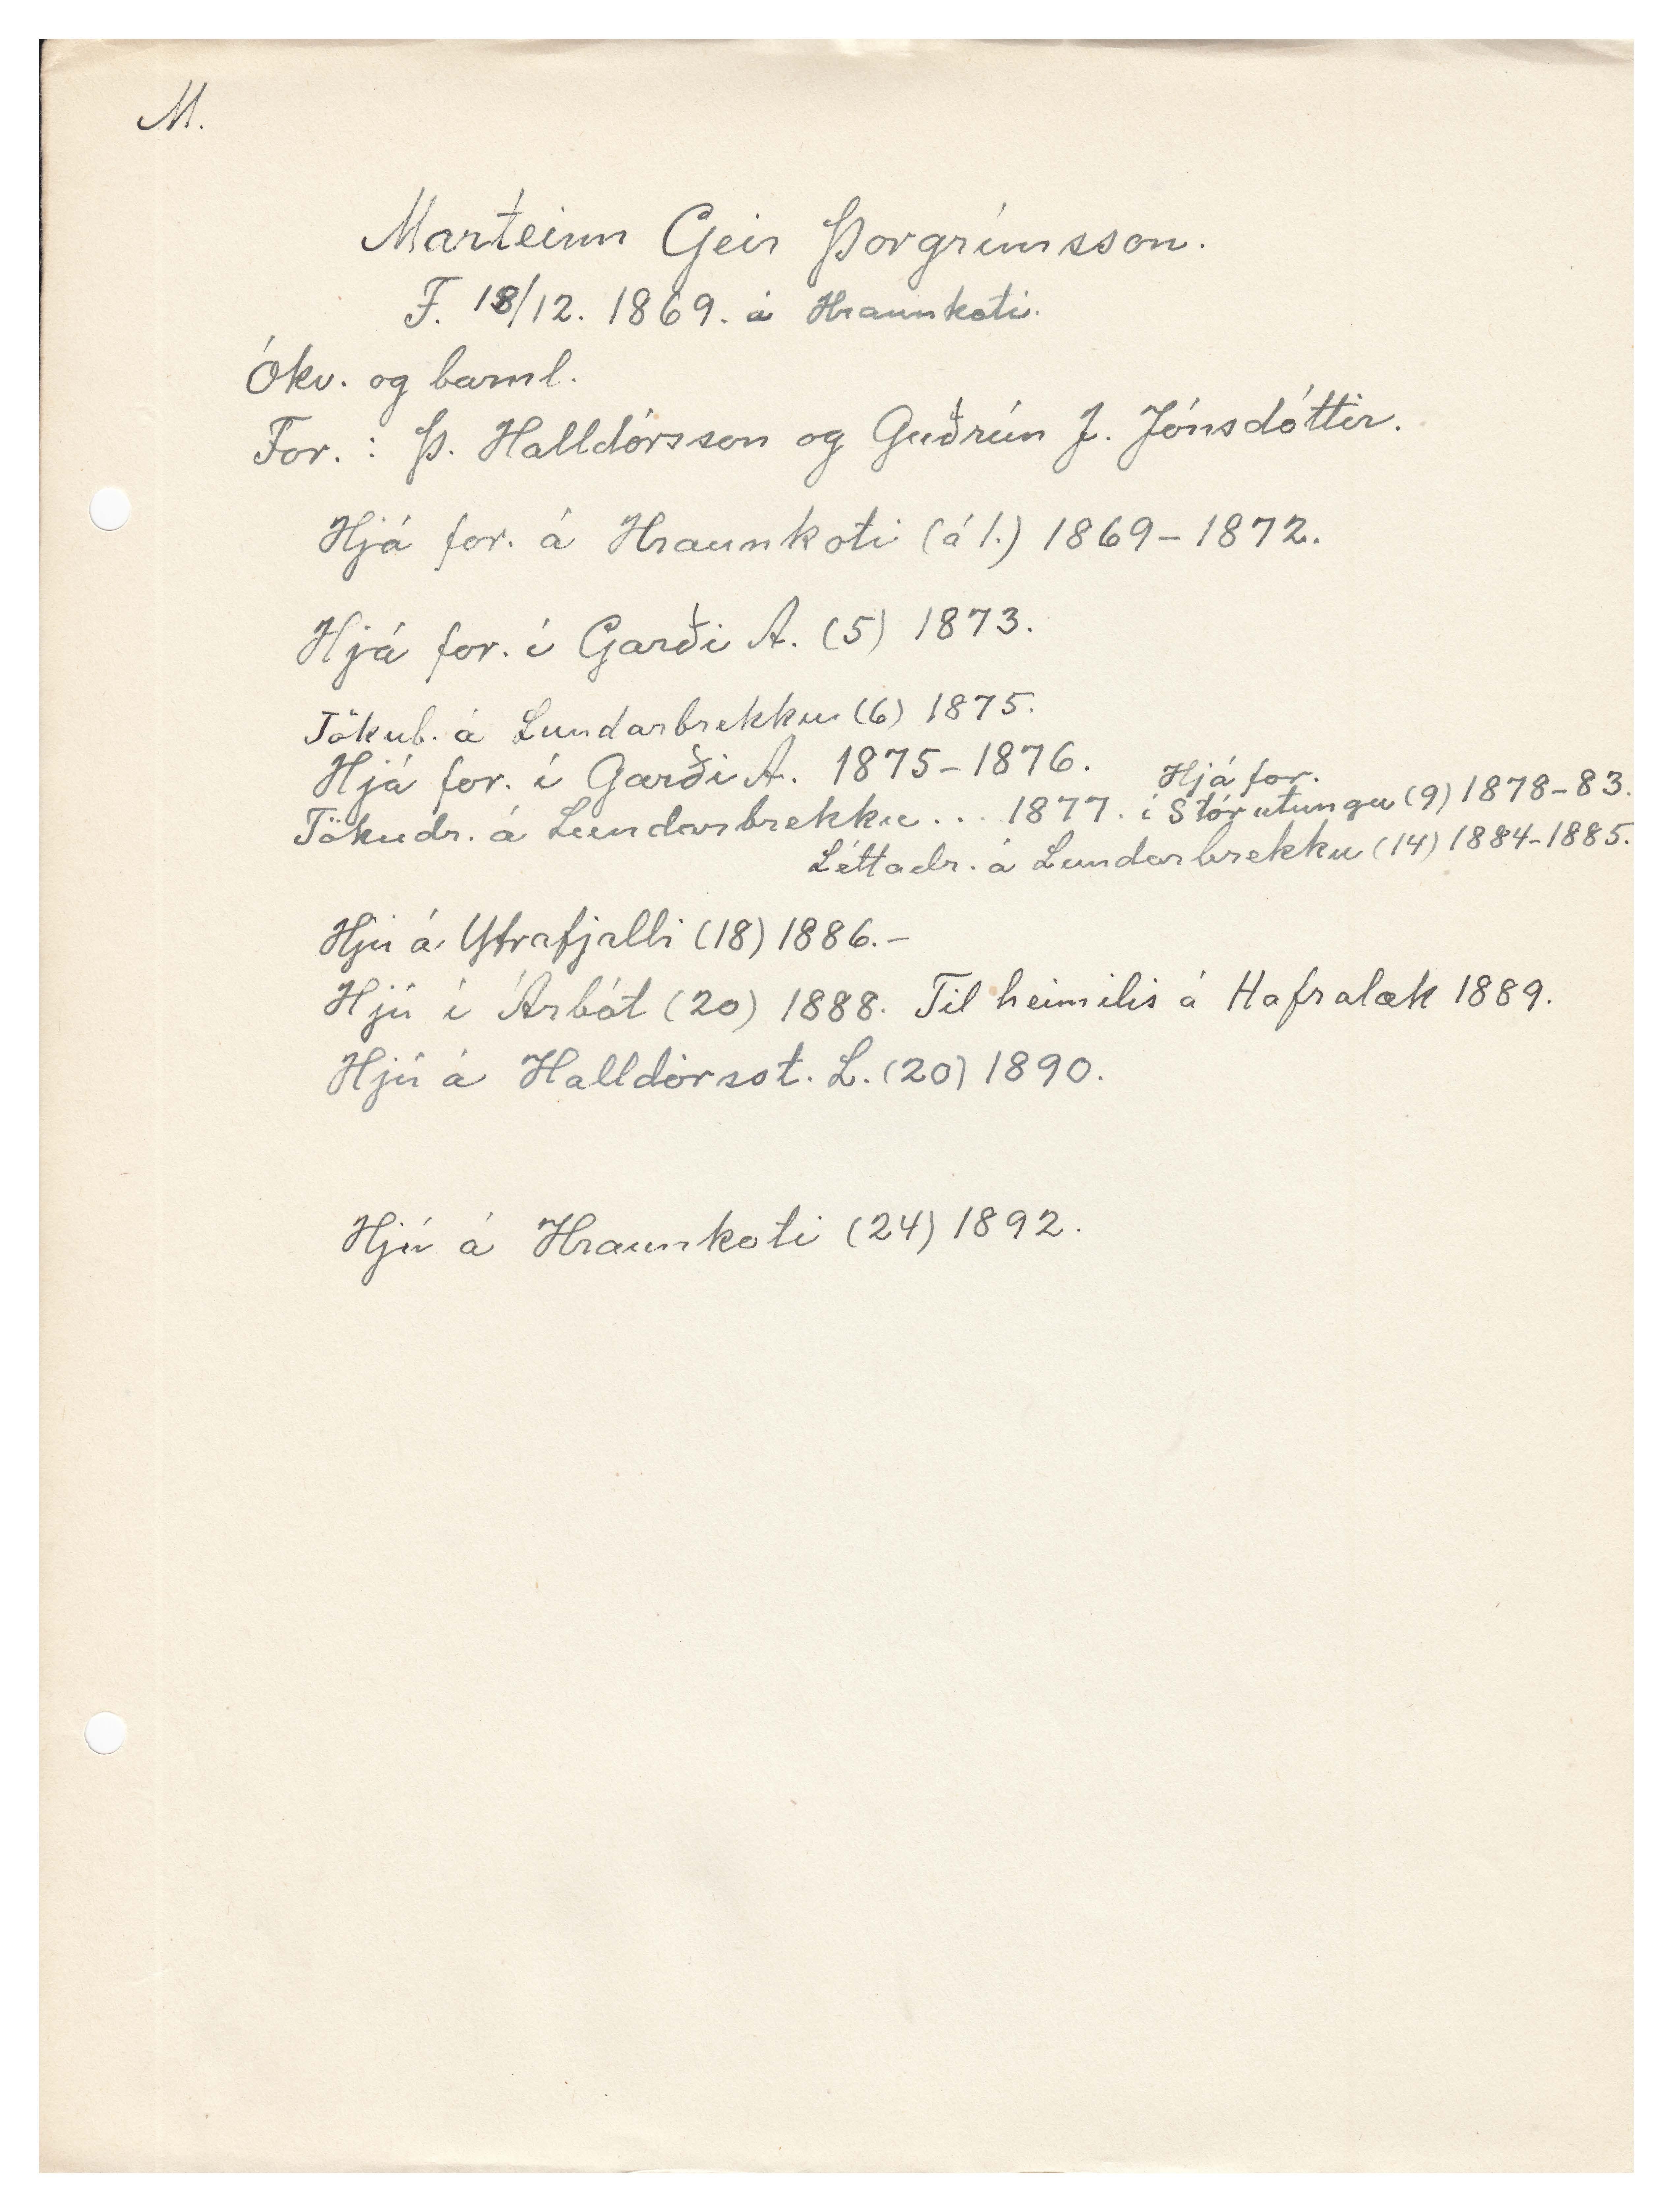 M.
Marteinn Geir Þorgrímsson.
F. 18/12. 1869. á Hraunkoti.
Ókv. og barnl.
For. : Þ. Halldórsson og Guðrún J. Jónsdóttir.
Hjá for. á Hraunkoti (á 1.) 1869-1872.
Hjá for. í Garði A. (5) 1873.
Tökub. á Lundarbrekku (6) 1875.
Hjá for. í Garði A. 1875-1876.
Hjá for.
Tökudr. á Lundarbrekku... 1877. í Stórutungu (9) 1878-83.
Léttadr. á Lundarbrekku (14) 1884-1885.
Hjú á Ytrafjalli (18) 1886.-
Hjú í Árbót (20) 1888. Til heimilis á Hafralæk 1889.
Hjú á Halldórsst. L. (20) 1890.
Hjú á Hraunkoti (24) 1892.